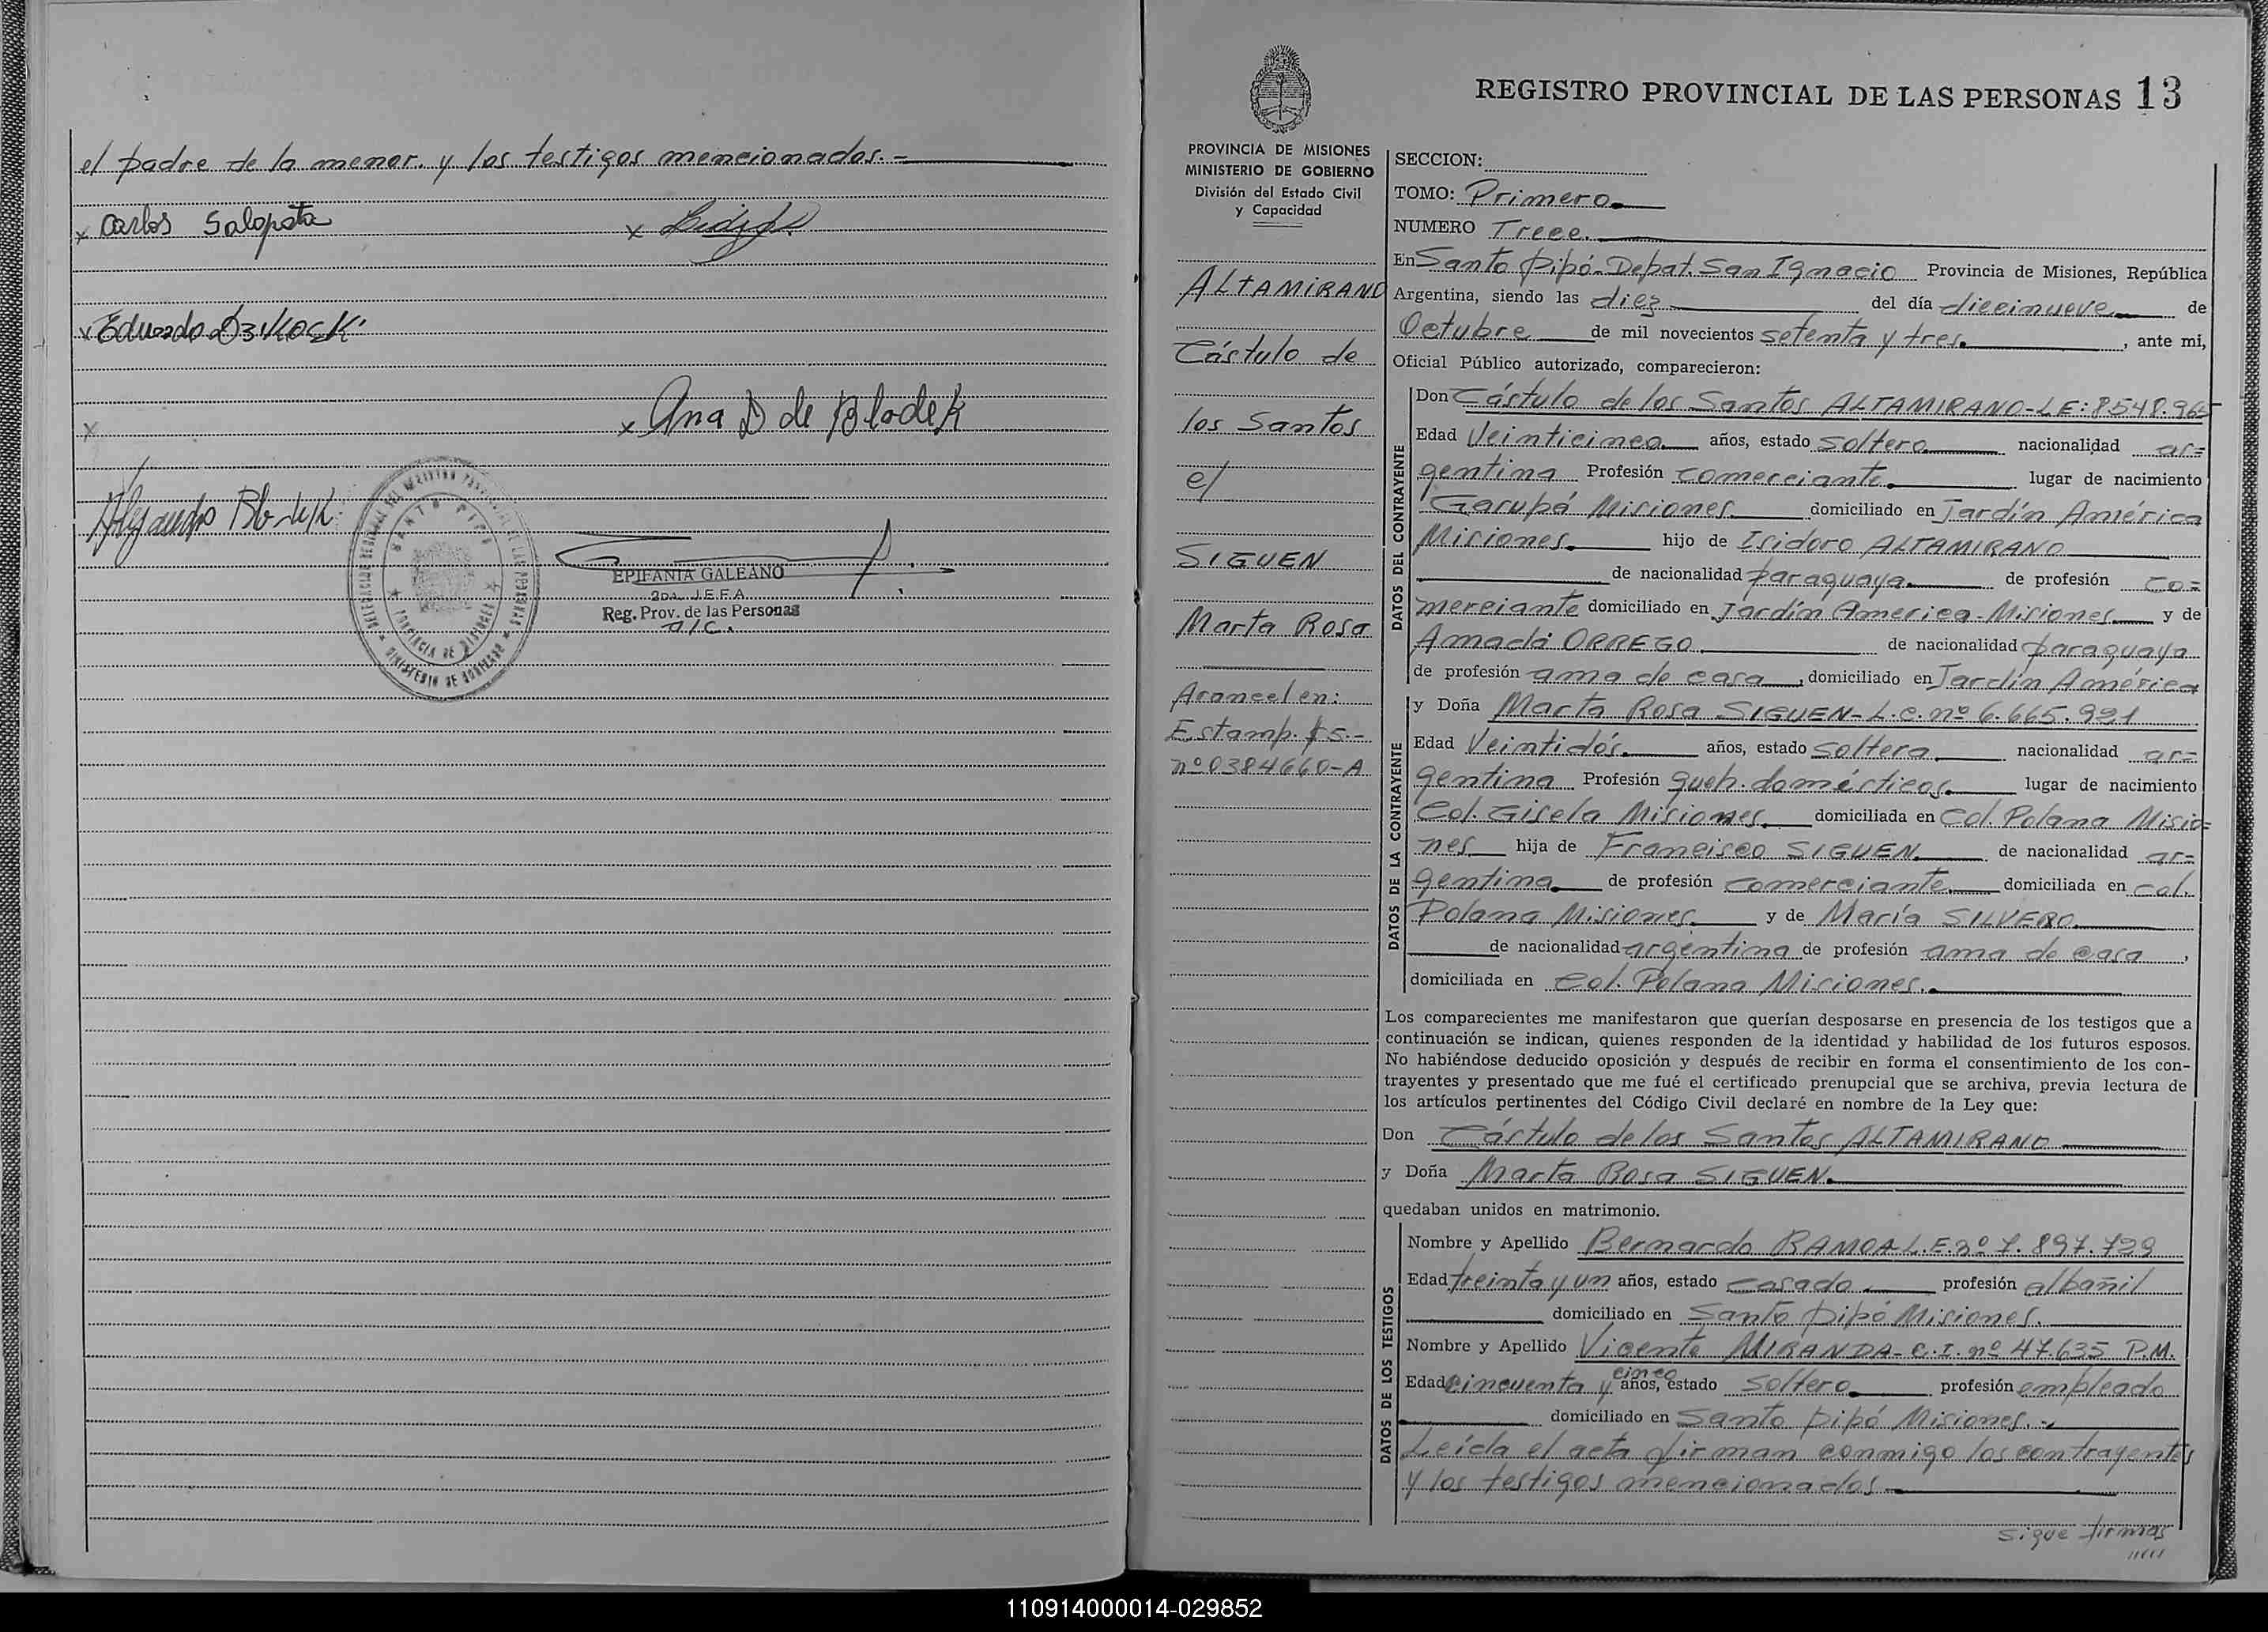 el padre de la menor. y los testigos mencionados.-
x Carlos Salopata
x
x Eduardo Dzikocki
x Ana D de Blodek
x
Alejandro Blodek
SANTO PIPO
PROVINCIA DE MISIONES
MINISTERIO DE GOBIERNO
EPIFANIA GALEANO
2DA. JEFA
Reg. Prov. de las Personas
A/C.
REGISTRO PROVINCIAL DE LAS PERSONAS 13
PROVINCIA DE MISIONES
MINISTERIO DE GOBIERNO
División del Estado Civil
y Capacidad
ALTAMIRANO
Cástulo de
los Santos
el
SIGUEN
Marta Rosa
Arancel en:
Estamp. $5.-
nº0384660-A
SECCION:
TOMO: Primero
NUMERO Trece.
En Santo Pipó-Depat. San Ignacio Provincia de Misiones, República
Argentina, siendo las diez del día diecinueve de
Octubre de mil novecientos setenta y tres. , ante mi,
Oficial Público autorizado, comparecieron:
DATOS DEL CONTRAYENTE
Don Cástulo de los Santos ALTAMIRANO-LE:8548.965
Edad Veinticinco años, estado soltero nacionalidad ar=
gentina Profesión comerciante. lugar de nacimiento
Garupá Misiones domiciliado en Jardín América
Misiones. hijo de Isidoro ALTAMIRANO
de nacionalidad paraguaya. de profesión co=
merciante domiciliado en Jardín America-Misiones y de
Amada ORREGO de nacionalidad paraguaya
de profesión ama de casa , domiciliado en Jardín América
DATOS DE LA CONTRAYENTE
y Doña Marta Rosa SIGUEN-L.C.nº 6.665.991
Edad Veintidós. años, estado soltera nacionalidad ar=
gentina Profesión queh.domésticos. lugar de nacimiento
Col. Gisela Misiones. domiciliada en Col. Polana Misio=
nes hija de Francisco SIGUEN. de nacionalidad ar=
gentina de profesión comerciante. domiciliada en col.
Polana Misiones y de María SILVERO
de nacionalidad argentina de profesión ama de casa ,
domiciliada en Col. Polana Misiones.
Los comparecientes me manifestaron que querían desposarse en presencia de los testigos que a
continuación se indican, quienes responden de la identidad y habilidad de los futuros esposos.
No habiéndose deducido oposición y después de recibir en forma el consentimiento de los con-
trayentes y presentado que me fué el certificado prenupcial que se archiva, previa lectura de
los artículos pertinentes del Código Civil declaré en nombre de la Ley que:
Don Cástulo de los Santos ALTAMIRANO
y Doña Marta Rosa SIGUEN.
quedaban unidos en matrimonio.
DATOS DE LOS TESTIGOS
Nombre y Apellido Bernardo RAMOA L.E.nº 7.897.729
Edad treinta y un años, estado casado profesión albañil
domiciliado en Santo Pipó Misiones.
Nombre y Apellido Vicente MIRANDA-C.I. nº 47.635 P.M.
Edad cincuenta y cinco años, estado soltero profesión empleado
domiciliado en Santo Pipó Misiones.-
Leída el acta firman conmigo los contrayentes
y los testigos mencionados
sigue firmas
110914000014-029852